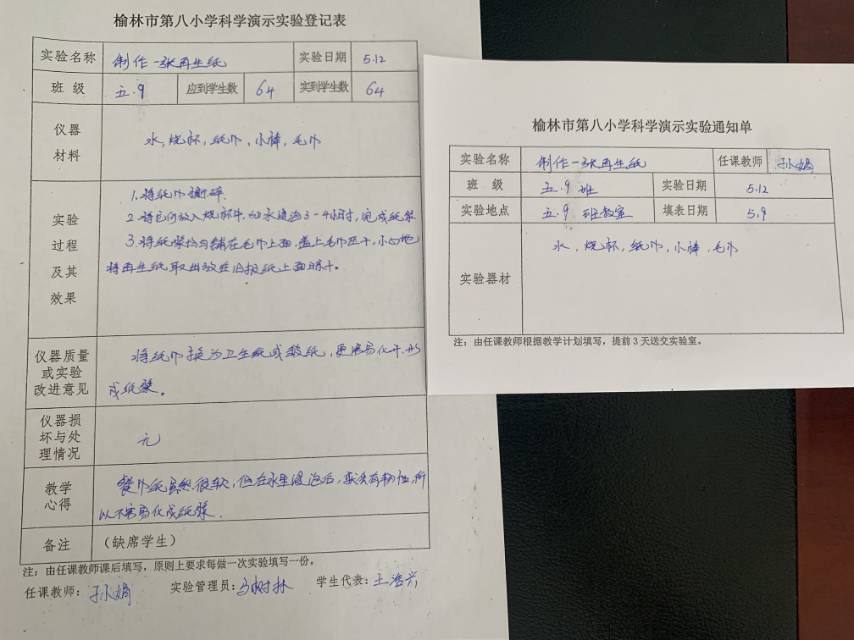 榆林市第八小学科学演示实验登记表
实验名称 制作一张再生纸 实验日期 5.12
班级 五.9 应到学生数 64 实到学生数 64
仪器
材料
水,烧杯,纸巾,小棒,毛巾
实验
过程
及其
效果
1.将纸巾撕碎.
2.将它们放入烧杯中,加水浸泡3-4小时,完成纸浆
3.将纸浆均匀铺在毛巾上面,盖上毛巾压干,小心地
将再生纸取出放在旧报纸上面晾干。
仪器质量
或实验
改进意见
将纸巾换为卫生纸或报纸,更容易化开.形
成纸浆。
仪器损
坏与处
理情况
无
教学
心得
餐巾纸虽然很软,但在水里浸泡后,有韧性,所
以不容易化成纸浆.
备注 (缺席学生)
注:由任课教师课后填写,原则上要求每做一次实验填写一份。
任课教师:孙娟 实验管理员:马树林 学生代表:
榆林市第八小学演示实验通知单
实验名称 制作一张再生纸 任课教师 孙娟
班级 五.9班 实验日期 5.12
实验地点 五.9班教室 填表日期 5.9
实验器材
水,烧杯,纸巾,小棒,毛巾
注:由任课教师根据教学计划填写,提前3天送交实验室。